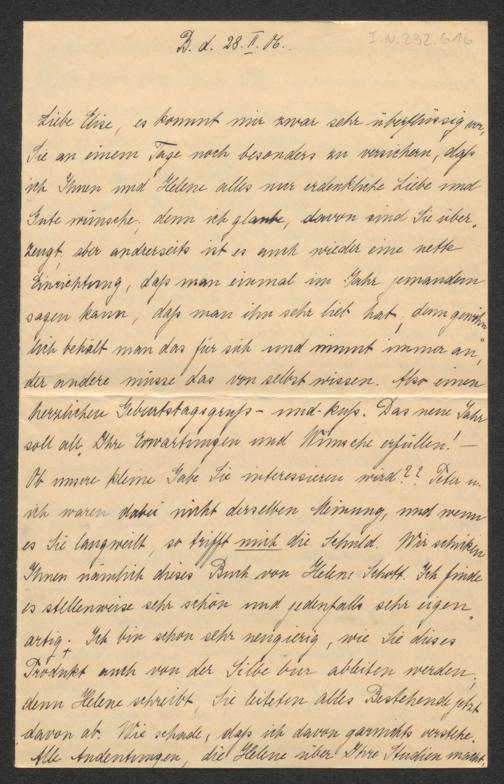 I.N. 232.616
B. d. 28. II. 06.
Liebe Elise, es kommt mir zwar sehr überflüssig vor,
Sie an einem Tage noch besonders zu versichern, daß
ich Ihnen und Helene alles nur erdenkliche Liebe und
Gute wünsche, denn ich glaube, davon sind Sie über-
zeugt, aber andrerseits ist es auch wieder eine nette
Einrichtung, daß man einmal im Jahr jemandem
sagen kann, daß man ihn sehr lieb hat, denn gewöhn
lich behält man das für sich und nimmt immer an,
der andere müsse das von selbst wissen. Also einen
herzlichen Geburtstagsgruß- und -kuß. Das neue Jahr
soll all Ihre Erwartungen und Wünsche erfüllen! —
Ob unsere kleine Gabe Sie interessieren wird?? Peter u.
ich waren dabei nicht derselben Meinung, und wenn
es Sie langweilt, so trifft mich die Schuld. Wir schicken
Ihnen nämlich dieses Buch von Helene Schott. Ich finde
es stellenweise sehr schön und jedenfalls sehr eigen-
artig. Ich bin schon sehr neugierig, wie Sie dieses
Produkt auch von der Silbe bur ableiten werden,
denn Helene schreibt, Sie leiteten alles Bestehende jetzt
davon ab. Wie schade, daß ich davon garnichts verstehe.
Alle Andeutungen, die Helene über Ihre Studien macht,